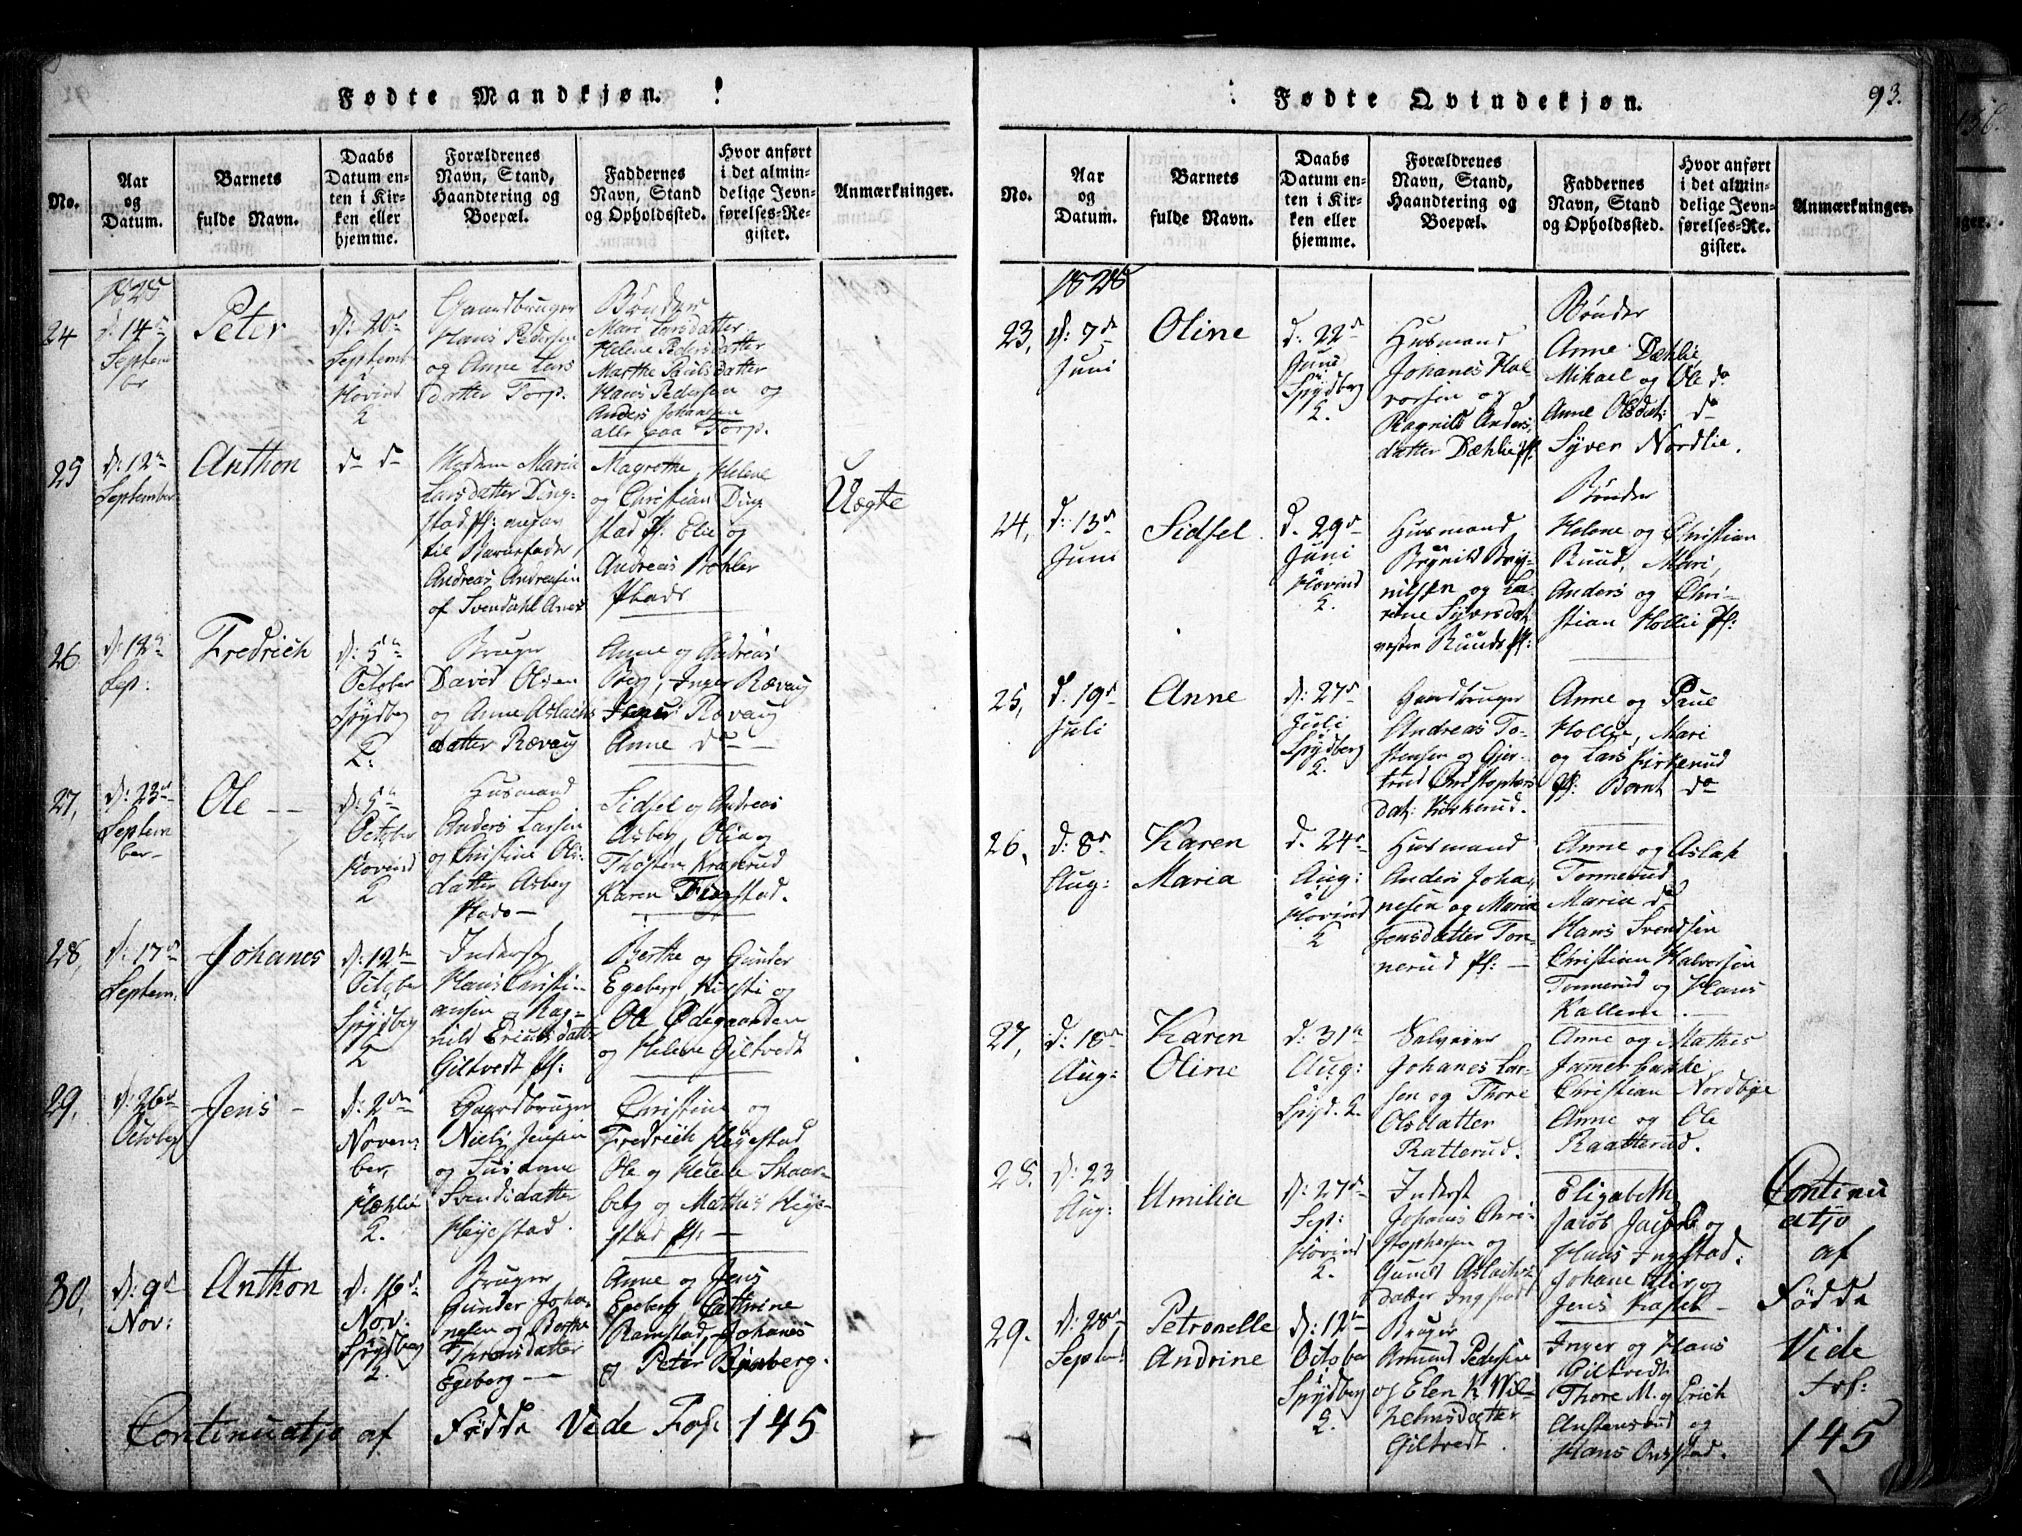 Fødte Mandkjøn.
No.
Aar
og
Datum.
Barnets
fulde Navn.
Daabs
Datum en-
ten i Kir-
ken eller
hjemme.
Forældrenes
Navn, Stand,
Haandtering og
Boepæl.
Faddernes
Navn, Stand
og Opholdssted.
Hvor anført
i det almin-
delige Jevn-
førelses-Re-
gister.
Anmærkninger.
1825
24
d: 14de
Septem
br
Peter
d: 20de
Septemb
Hovind
2
Gaardbruger
Hans Pedersen
og Anne Lars
datter Torp.
Bønder
Mari Larsdatter
Helene Pedersdatter
Marthe Paulsdatter
Hans Pedersen og
Anders Johansen
alle paa Torp.
25
d: 12te
September
Anthon
do do
Modern Maria
Larsdatter Ding-
stad Pl: angav
til Barnefader
Andreas Andresen
af Svendahl
Magrethe, Helene
og Christian Ding
stad Pl. Elie og
Andreas Bøhler
Plads
Uægte
26
Sep:
Fredrich
d: 5te
October
Spydberg
2:
Bruger
David Olsen
og Anne Aslachs
datter Rævaug
Anne og Andreas
Berg, Inger Rævaug
Rævaug
Anne do
27,
d: 23de
Septem
ber
Ole
d: 5te
October
Hovind
2
Husmand
Anders Larsen
og Christine Ols
datter Asberg
Plads
Sidsel og Andreas
Asberg, Olia og
Thosten Kragerud
Karen Fingstad.
28,
d: 17de
Septem:
Johanes
d: 12te
October
Spydberg
2
Inderst
Hans Christi-
ansen og Rag-
nild Erichsdatter
Giltvedt Pl:
Berthe og Gunder
Egeberg, Kirsti og
Ole Ødegaarden
og Helene Giltvedt
29,
d: 26de
October
Jens
d: 2den
Novem
ber,
Hæhlie
2.
Gaardbruger
Niels Jensen
og Susanne
Svendsdatter
Heyestad.
Christine og
Fredrich Heyestad
Ole og Helene Skaar-
berg og Mathis Heye-
stad Pl:
30,
d: 9de
Nov:
Anthon
d: 16de
Nov:
Spydberg
2.
Bruger
Gunder Joha-
nesen og Berthe
Thoresdatter
Egeberg
Anne og Jens
Egeberg Cathrine
Ramstad, Johanes
og Peter Bjønberg.
Continuatjo af Fødde Vide Fol: 145
93.
Fødte Qvindekjøn.
No.
Aar
og
Datum.
Barnets
fulde Navn.
Daabs
Datum en-
ten i Kir-
ken eller
hjemme.
Forældrenes
Navn, Stand,
Haandtering og
Boepæl.
Faddernes
Navn, Stand
og Opholdssted.
Hvor anført
i det almin-
delige Jevn-
førelses-Re-
gister.
Anmærkninger.
1825
23,
d: 7de
Juni
Oline
d. 22de
Juni
Spydberg
2.
Husmand
Johanes Hal-
vorsen og
Ragnild Anders
datter Dæhlie Pl.
Bønder
Anne Dæhlie,
Mikael og Ole do
Anne Olsdat: do
Syver Nordlie.
24,
d: 13de
Juni
Sidsel.
d. 29de
Juni
Hovind
2.
Husmand
Brynild Bryn-
nilsen og La-
rine Syversdat
Ruud Pl:
Bønder
Helene og Christian
Ruud, Mari,
Anders og Chri-
stian Hollie Pl:
25,
d: 19de
Juli
Anne
d: 27de
Juli
Spydberg
2.
Gaardbruger
Andreas To-
stensen og Gjer-
trud Christophers
dat: Kirkerud.
Anne og Paul
Hollie, Mari
og Lars Kirkerud
Pl: Bernt do
26,
d: 8de
Aug:
Karen
Maria
d. 24de
Aug:
Hovind
2
Husmand
Anders Joha-
nesen og Maria
Jensdatter Ton-
nerud Pl:
Anne og Aslak
Tonnerud
Maria do
Hans Svendsen
Christian Halvorsen
Tonnerud og Hans
Kallem
27,
d: 18de
Aug:
Karen
Oline
d: 31te
Aug:
Spyd. 2.
Selveier
Johanes Lar-
sen og Thore
Olsdatter
Ratterud.
Anne og Mathis
Jamerbakke
Christian Nordbye
Anne og Ole
Raatterud.
28.
d: 23
Aug:
Umilia
d: 27de
Sep:
Hovind
2.
Inderst
Johanes Chri-
stophersen og
Gunild Aslachs
datter Ingstad
Elizabeth
Jacob Jacobs og
Hans Ingstad.
Johane Elie og
Jens
Continu
atjo
af
Fødde
Vide
Fol:
145
29.
d: 28de
Septemb:
Petronelle
Andrine
d: 12te
October
Spydberg
2.
Bruger
Amund Pedersen
og Elen K Wil-
helmsdatter
Giltvedt.
Inger og Hans
Giltvedt
Thore M. og Erich
Austensrud og
Hans Onstad.
156.